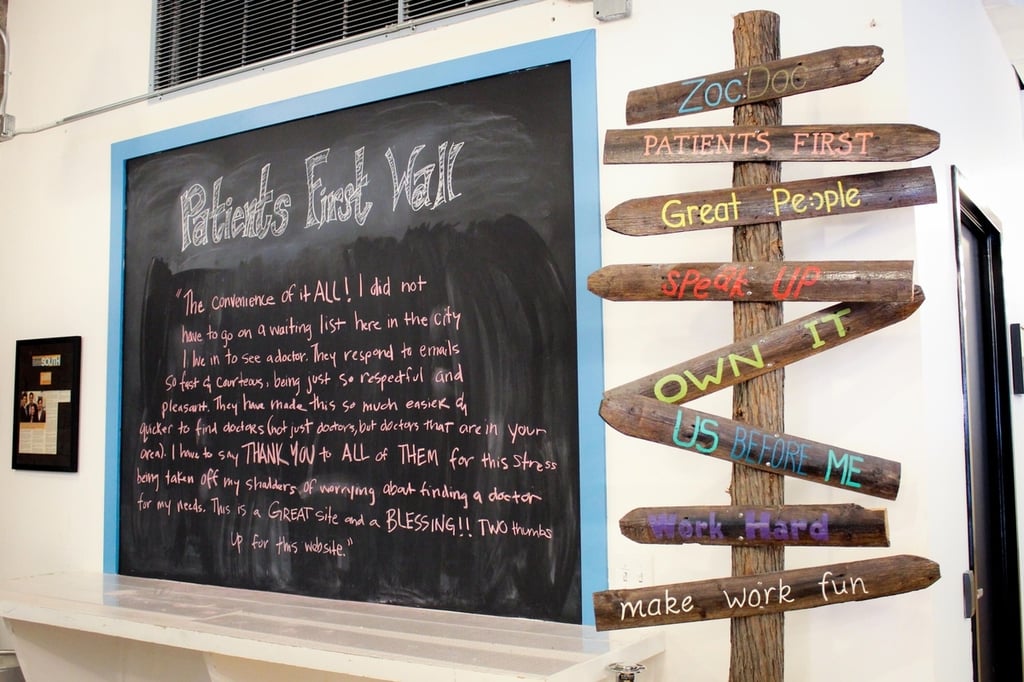 Patients First Wall
"The convenience of it ALL! I did not
have to go on a waiting list here in the city
I live in to see a doctor. They respond to emails
so fast & courteous, being just so respectful and
pleasant. They have made this so much easier &
quicker to find doctors (not just doctors, but doctors that are in your
area). I have to say THANK YOU to ALL of THEM for this stress
being taken off my shadders of worrying about finding a doctor
for my needs. This is a GREAT site and a BLESSING!! TWO thumbs
up for this website."
ZocDoc
PATIENT'S FIRST
Great People
SPeak UP
OWN IT
US BEFORE ME
Work Hard
make work fun
SOUTH